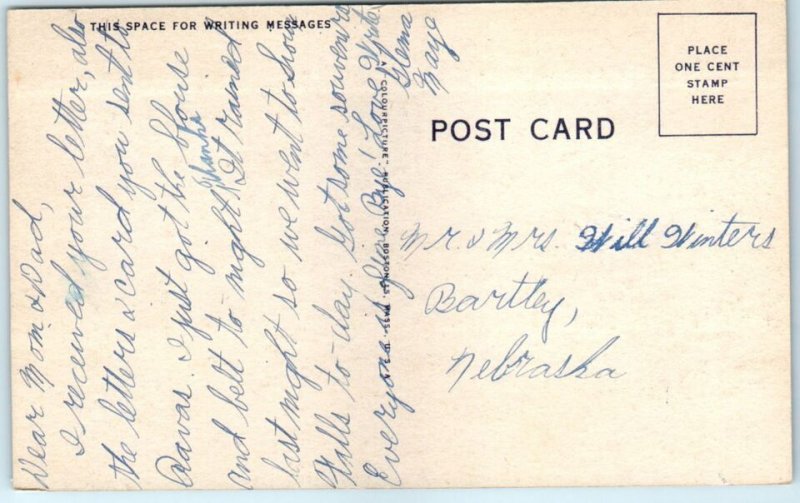 THIS SPACE FOR WRITING MESSAGES
Dear Mom & Dad,
I received your letter, also
the letters & card you sent to
Aavas. I just got the blouse
and belt to-night. Thanks It rained
last night so we went to Sioux
Falls to-day. Got some souveners
Everyone is fine. Bye! Love Write
Glena
Faye
A "COLOURPICTURE" PUBLICATION, BOSTON 15, MASS., U.S.A.
POST CARD
PLACE
ONE CENT
STAMP
HERE
Mr. & Mrs. Will Winters
Bartley,
Nebraska